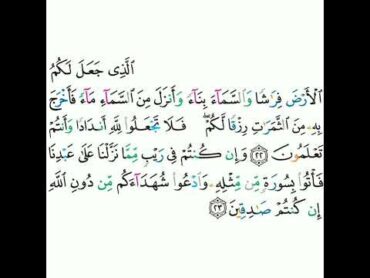 الَّذِى جَعَلَ لَكُمُ
الْأَرْضَ فِرَٰشًا وَالسَّمَآءَ بِنَآءً وَأَنزَلَ مِنَ السَّمَآءِ مَآءً فَأَخْرَجَ
بِهِۦ مِنَ الثَّمَرَٰتِ رِزْقًا لَّكُمْ ۖ فَلَا تَجْعَلُوا۟ لِلَّهِ أَندَادًا وَأَنتُمْ
تَعْلَمُونَ ٢٢ وَإِن كُنتُمْ فِى رَيْبٍ مِّمَّا نَزَّلْنَا عَلَىٰ عَبْدِنَا
فَأْتُوا۟ بِسُورَةٍ مِّن مِّثْلِهِۦ وَادْعُوا۟ شُهَدَآءَكُم مِّن دُونِ اللَّهِ
إِن كُنتُمْ صَٰدِقِينَ ٢٣